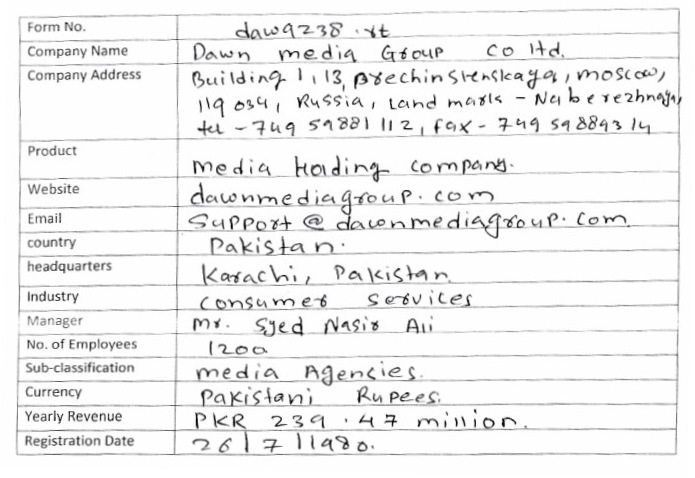 Form No. daw9238.rt
Company Name Dawn media Group co ltd.
Company Address Building 1, 13, Prechinstenskaya, moscow,
119 034, Russia, Land mark - Naberezhnaya,
tel - 749 59881 112, fax - 749 598893 14
Product media Holding company.
Website dawnmediagroup.com
Email Support@dawnmediagroup.com
country Pakistan.
headquarters Karachi, Pakistan
Industry consumer services
Manager mr. Syed Nasir Ali
No. of Employees 1200
Sub-classification media Agencies.
Currency Pakistani Rupees.
Yearly Revenue PKR 239.47 million.
Registration Date 26/7/1980.